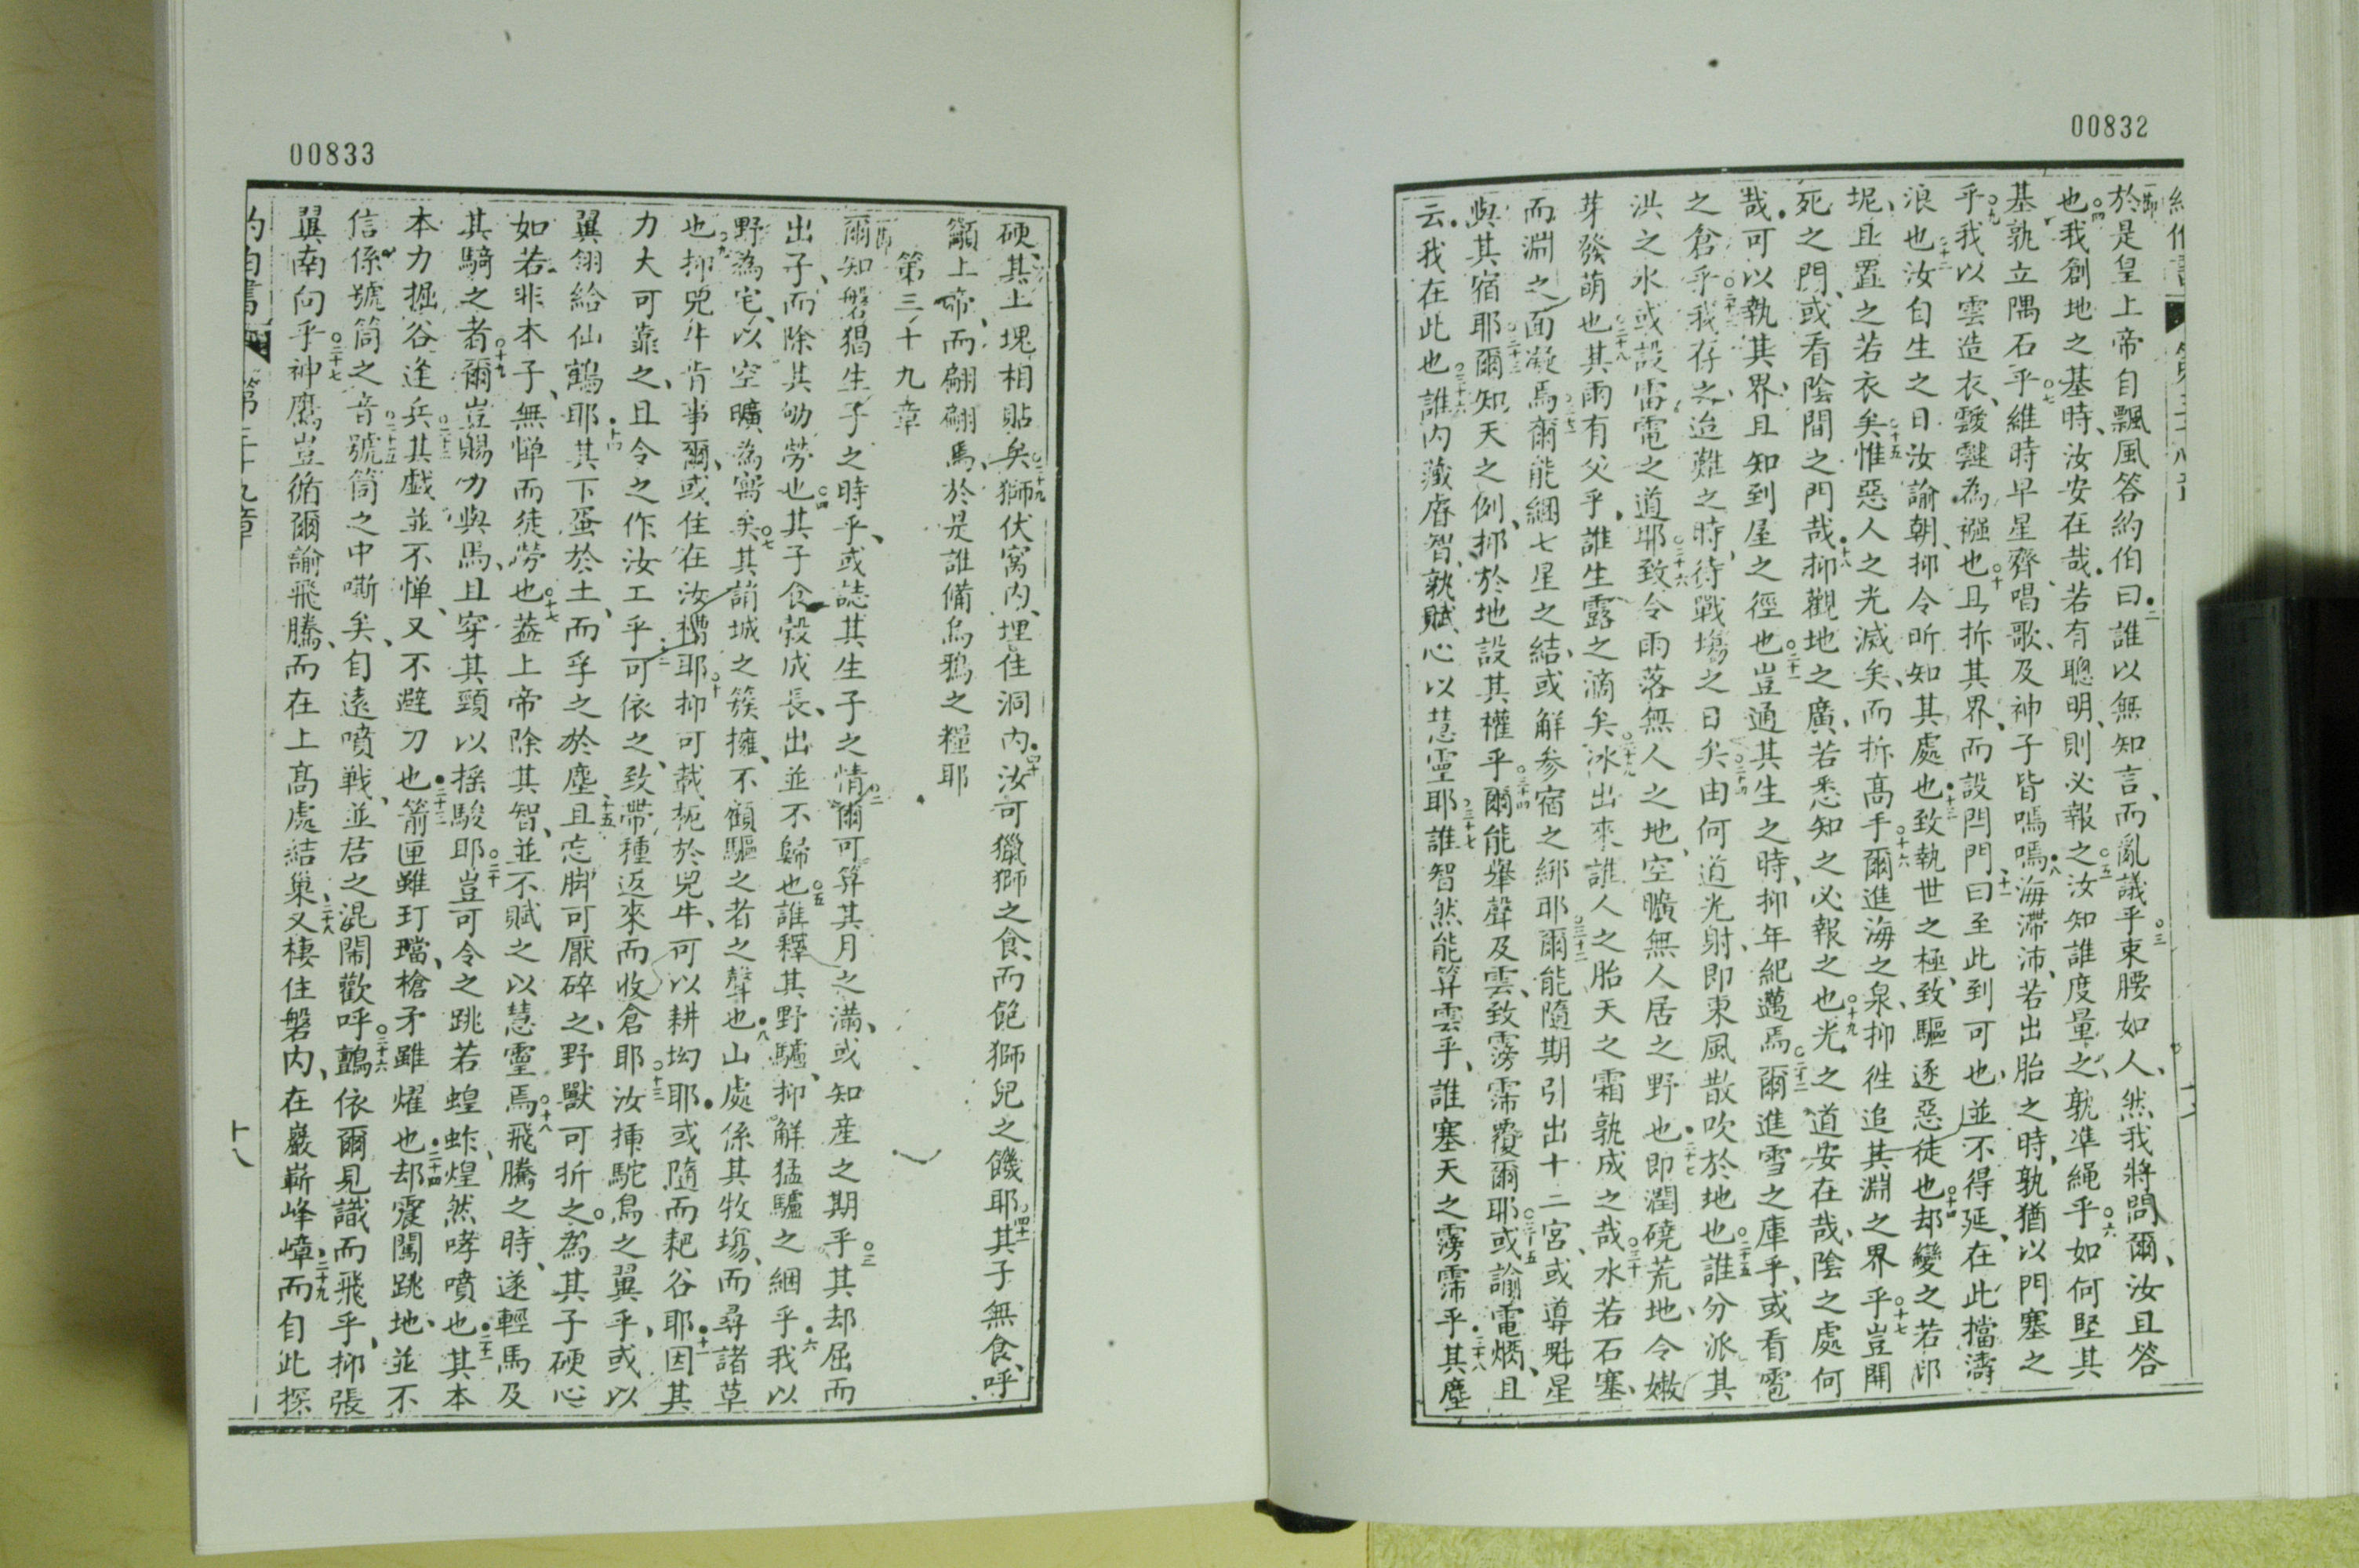 00832
於是皇上帝自飄風答約伯曰二誰以無知言而亂議乎三束腰如人然我將問爾汝且答
也四我創地之基時汝安在哉若有聰明則必報之五汝知誰度量之孰準繩乎六如何堅其
基孰立隅石乎七維時早星齊唱歌及神子皆嗚嗚八海滯沛若出胎之時孰猶以門塞之
乎九我以雲造衣靉靆為襁也十且拆其界而設閂門十一曰至此到可也並不得延在此擋濤
浪也十二汝自生之日汝諭朝抑令昕知其處也十三致執世之極致驅逐惡徒也十四却變之若印
坭且置之若衣矣十五惟惡人之光滅矣而拆高手十六爾進海之泉抑徃追其淵之界乎十七豈開
死之門或看陰間之門哉十八抑觀地之廣若悉知之必報之也十九光之道安在哉陰之處何
哉可以執其界且知到屋之徑也二十一豈通其生之時抑年紀邁焉二十二爾進雪之庫乎或看雹
之倉乎二十三我存之迨難之時待戰場之日矣二十四由何道光射即東風散吹於地也二十五誰分派其
洪之水或設雷電之道耶二十六致令雨落無人之地空曠無人居之野也二十七即潤磽荒地令嫩
芽發萌也二十八其雨有父乎誰生露之滴矣二十九冰出來誰人之胎天之霜孰成之哉三十水若石塞
而淵之面凝焉三十一爾能綑七星之結或解参宿之綁耶三十二爾能隨期引出十二宮或導魁星
與其宿耶三十三爾知天之例抑於地設其權乎三十四爾能舉聲及雲致霶霈覆爾耶三十五或諭電炳且
云我在此也三十六誰內藏睿智孰賦心以慧靈耶三十七誰智然能算雲乎誰塞天之霶霈乎三十八其塵
00833
硬其土塊相貼矣三十九獅伏窩內埋住洞內四十汝可獵獅之食而飽獅兒之饑耶四十一其子無食呼
籲上帝而翩翩焉於是誰備烏鴉之糧耶
第三十九章
爾知磐猖生子之時乎或誌其生子之情二爾可算其月之滿或知産之期乎三其却屈而
出子而除其劬勞也四其子食穀成長出並不歸也五誰釋其野驢抑解猛驢之綑乎六我以
野為宅以空曠為寓矣七其誚城之簇擁不顧驅之者之聲也八山處係其牧場而尋諸草
也九抑兕牛肯事爾或住在汝槽耶十抑可載軛於兕牛可以耕㘭耶或隨而耙谷耶十一因其
力大可靠之且令之作汝工乎十二可依之致帶種返來而收倉耶十三汝揷駝鳥之翼乎或以
翼翎給仙鶴耶十四其下蛋於土而孚之於塵十五且忘脚可厭碎之野獸可折之十六為其子硬心
如若非本子無憚而徒勞也十七蓋上帝除其智並不賦之以慧靈焉十八飛騰之時遂輕馬及
其騎之者十九爾豈賜力與馬且穿其頸以搖駿耶二十豈可令之跳若蝗蚱煌然哮噴也二十一其本
本力掘谷逢兵其戲並不憚又不避刀也二十三箭匣雖玎璫槍矛雖燿也二十四却震闖跳地並不
信係號筒之音二十五號筒之中嘶矣自遠噴戰並君之混鬧歡呼二十六鸇依爾見識而飛乎抑張
翼南向乎二十七神鷹豈循爾諭飛騰而在上高處結巢二十八又棲住磐內在巖嶄峰嶂二十九而自此探
約伯書 第三十九章 十八